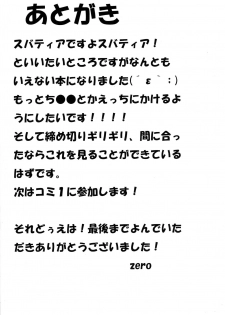 あとがき
スパティアですよスパティア！
といいたいところですがなんとも
いえない本になりました(´ε｀；)
もっとち●●とかえっちにかけるよ
うにしたいです！！！！
そして締め切りギリギリ、間に合っ
たならこれを見ることができている
はずです。
次はコミ１に参加します！
それどぅえは！最後までよんでいた
だきありがとうございました！
zero